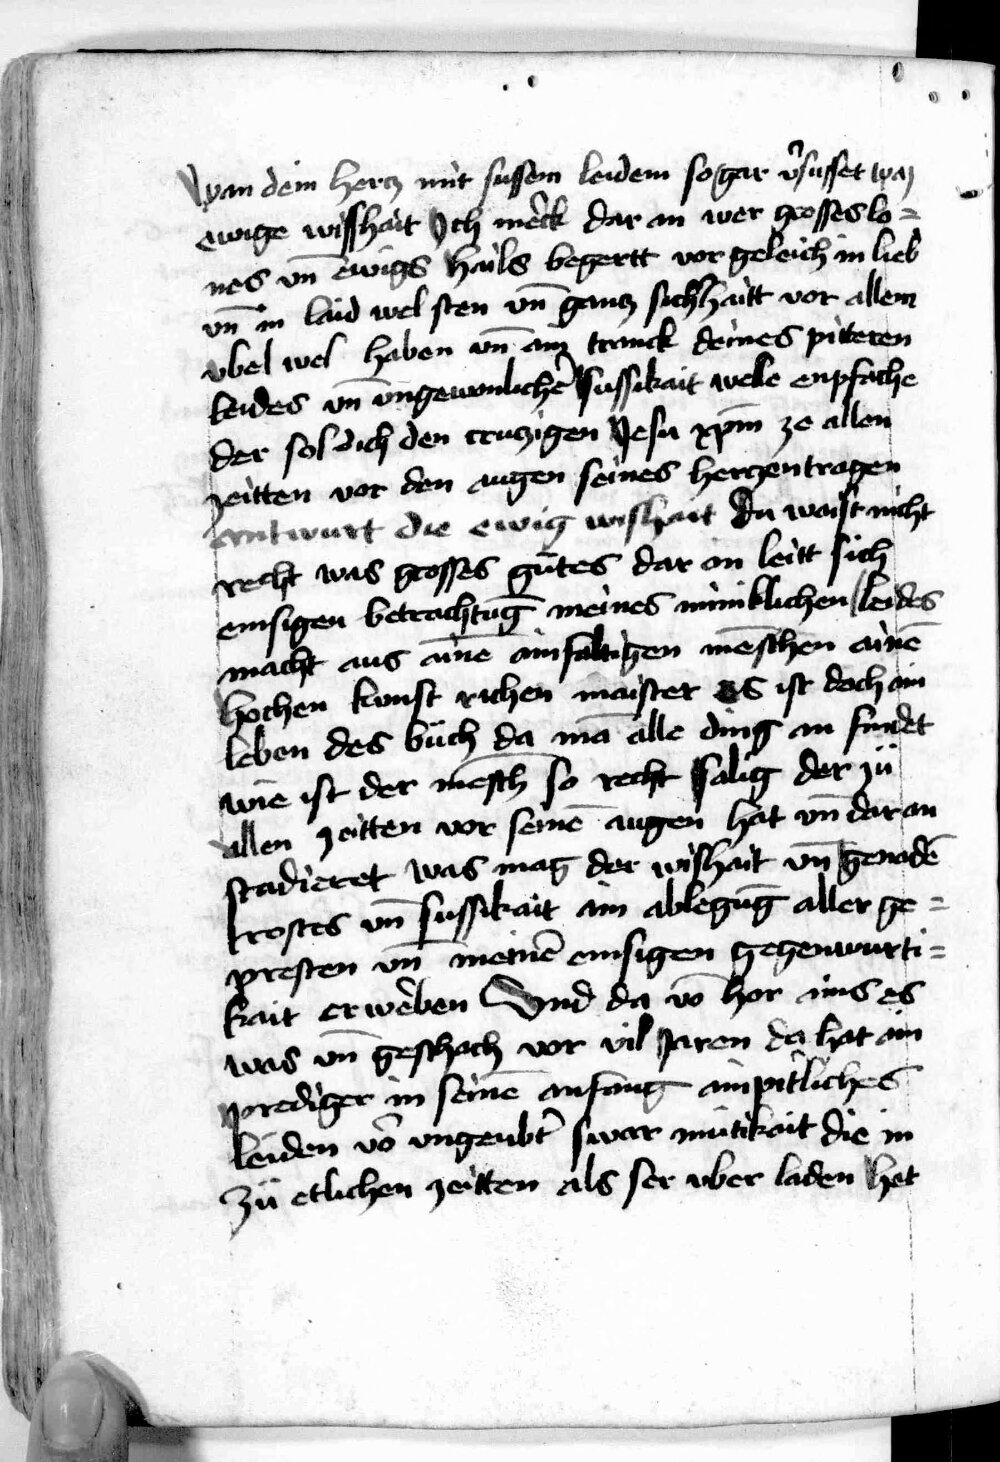 Wan dein hercz mit sussem leidem so gar v̉susset waz
ewige wisshait Ich mėck dar an wer grosses lo=
nes vn̄ ewigs hails begertt vor geleich in lieb
vn̄ in laid wel sten vn̄ gancz sichhaitt vor allem
vbel wel haben vn̄ ain tranck deines pitteren
leides vn̄ vngewonlichē sussikait welle enpfache
der sol dich den cruczigen Jesu xp̄m ze allen
zeitten vor den augen seines herczen tragen
antwurt die ewig wishait du waist nicht
recht was grosses gu̇tes dar an leitt sich
emsigen betrachtūg meines minniklichen leides
macht aus ainē ainfaltigen menschen ainē
hochen kunst richen maister es ist doch ain
leben des bu̇ch da mā alle ding an findet
wie ist der mēsch so recht salig der zu̇
allen zeitten vor seinē augen hat vn̄ dar an
stadieret was mag der wishait vn̄ genadē
trostes vn̄ sussikait ain ablegūg aller ge=
presten vn̄ meinē emsigen gegenwurti=
kait erweben Vnd da vō hor ains es
was vn̄ geschach vor vil Jaren da hat ain
prediger in seinē anfang ain pitliches
leiden vō vngeubt̉ swar mu̇tikait die in
zu̇ etlichen zeitten als ser vber laden het